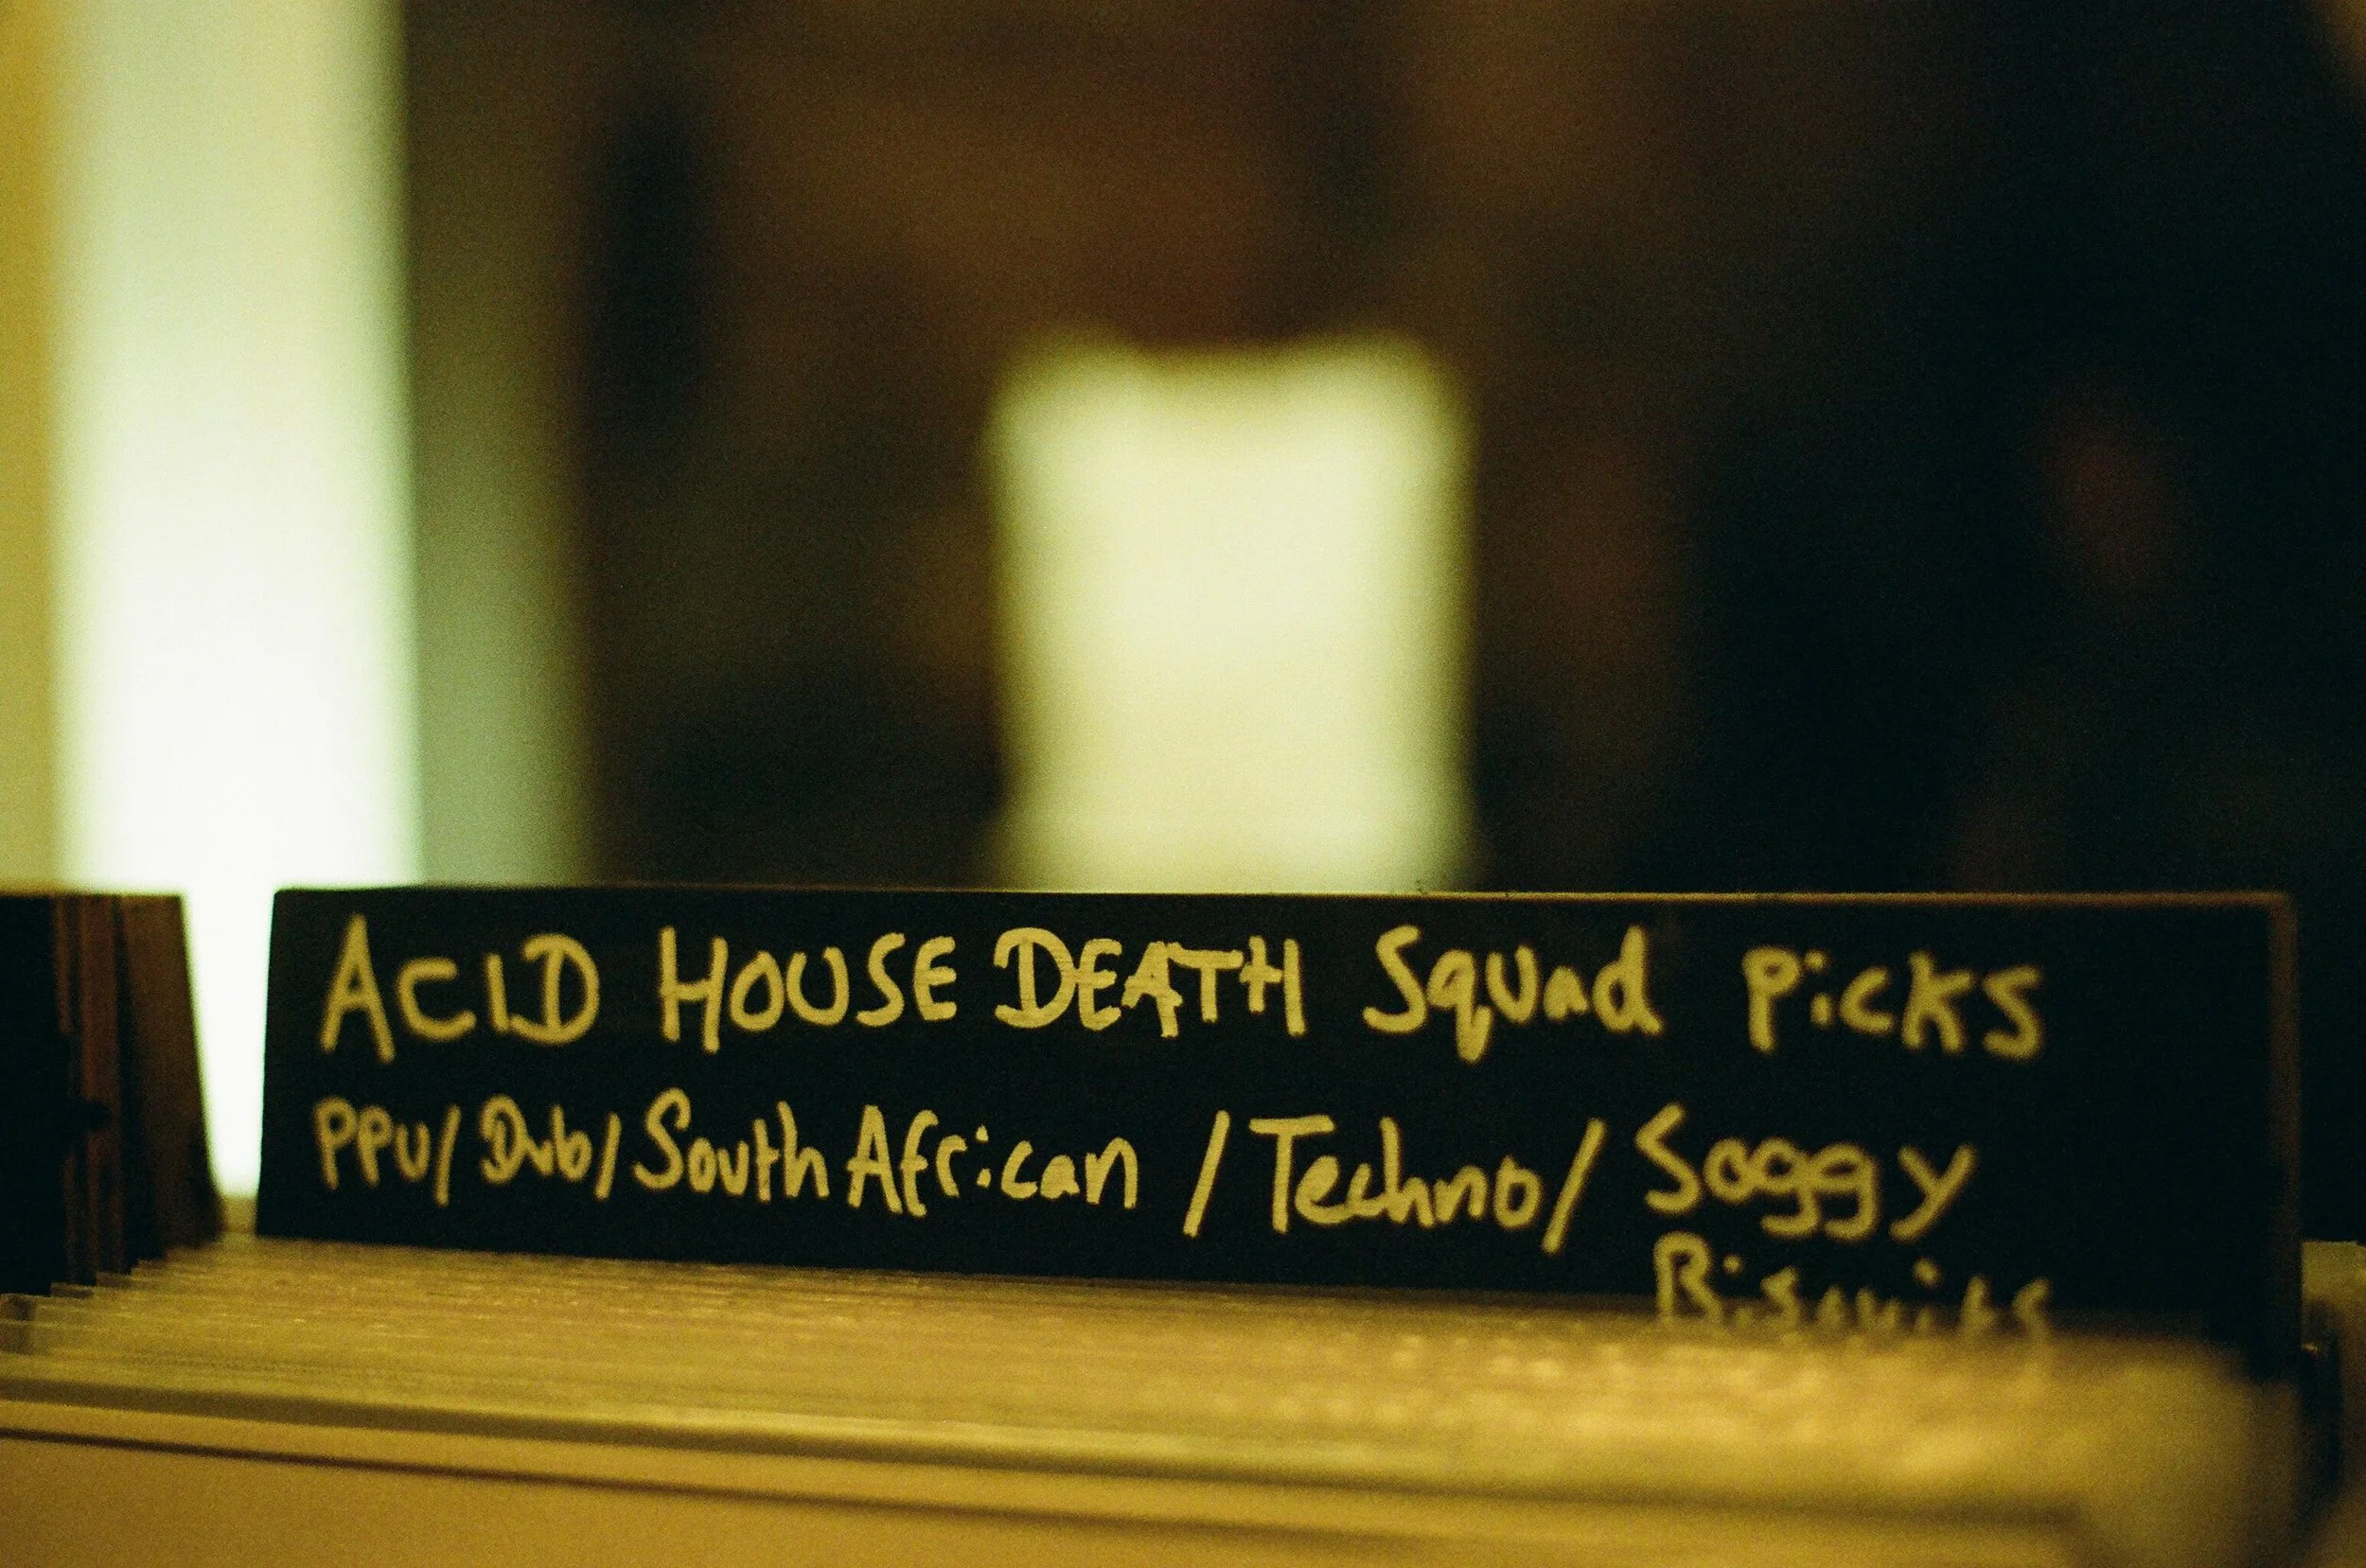 ACID HOUSE DEATH Squad PicKS
PPU/Dub/South African / Techno/ Soggy
Biscuits